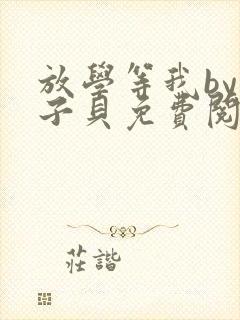 放學等我by
子貝免費閱
莊諧